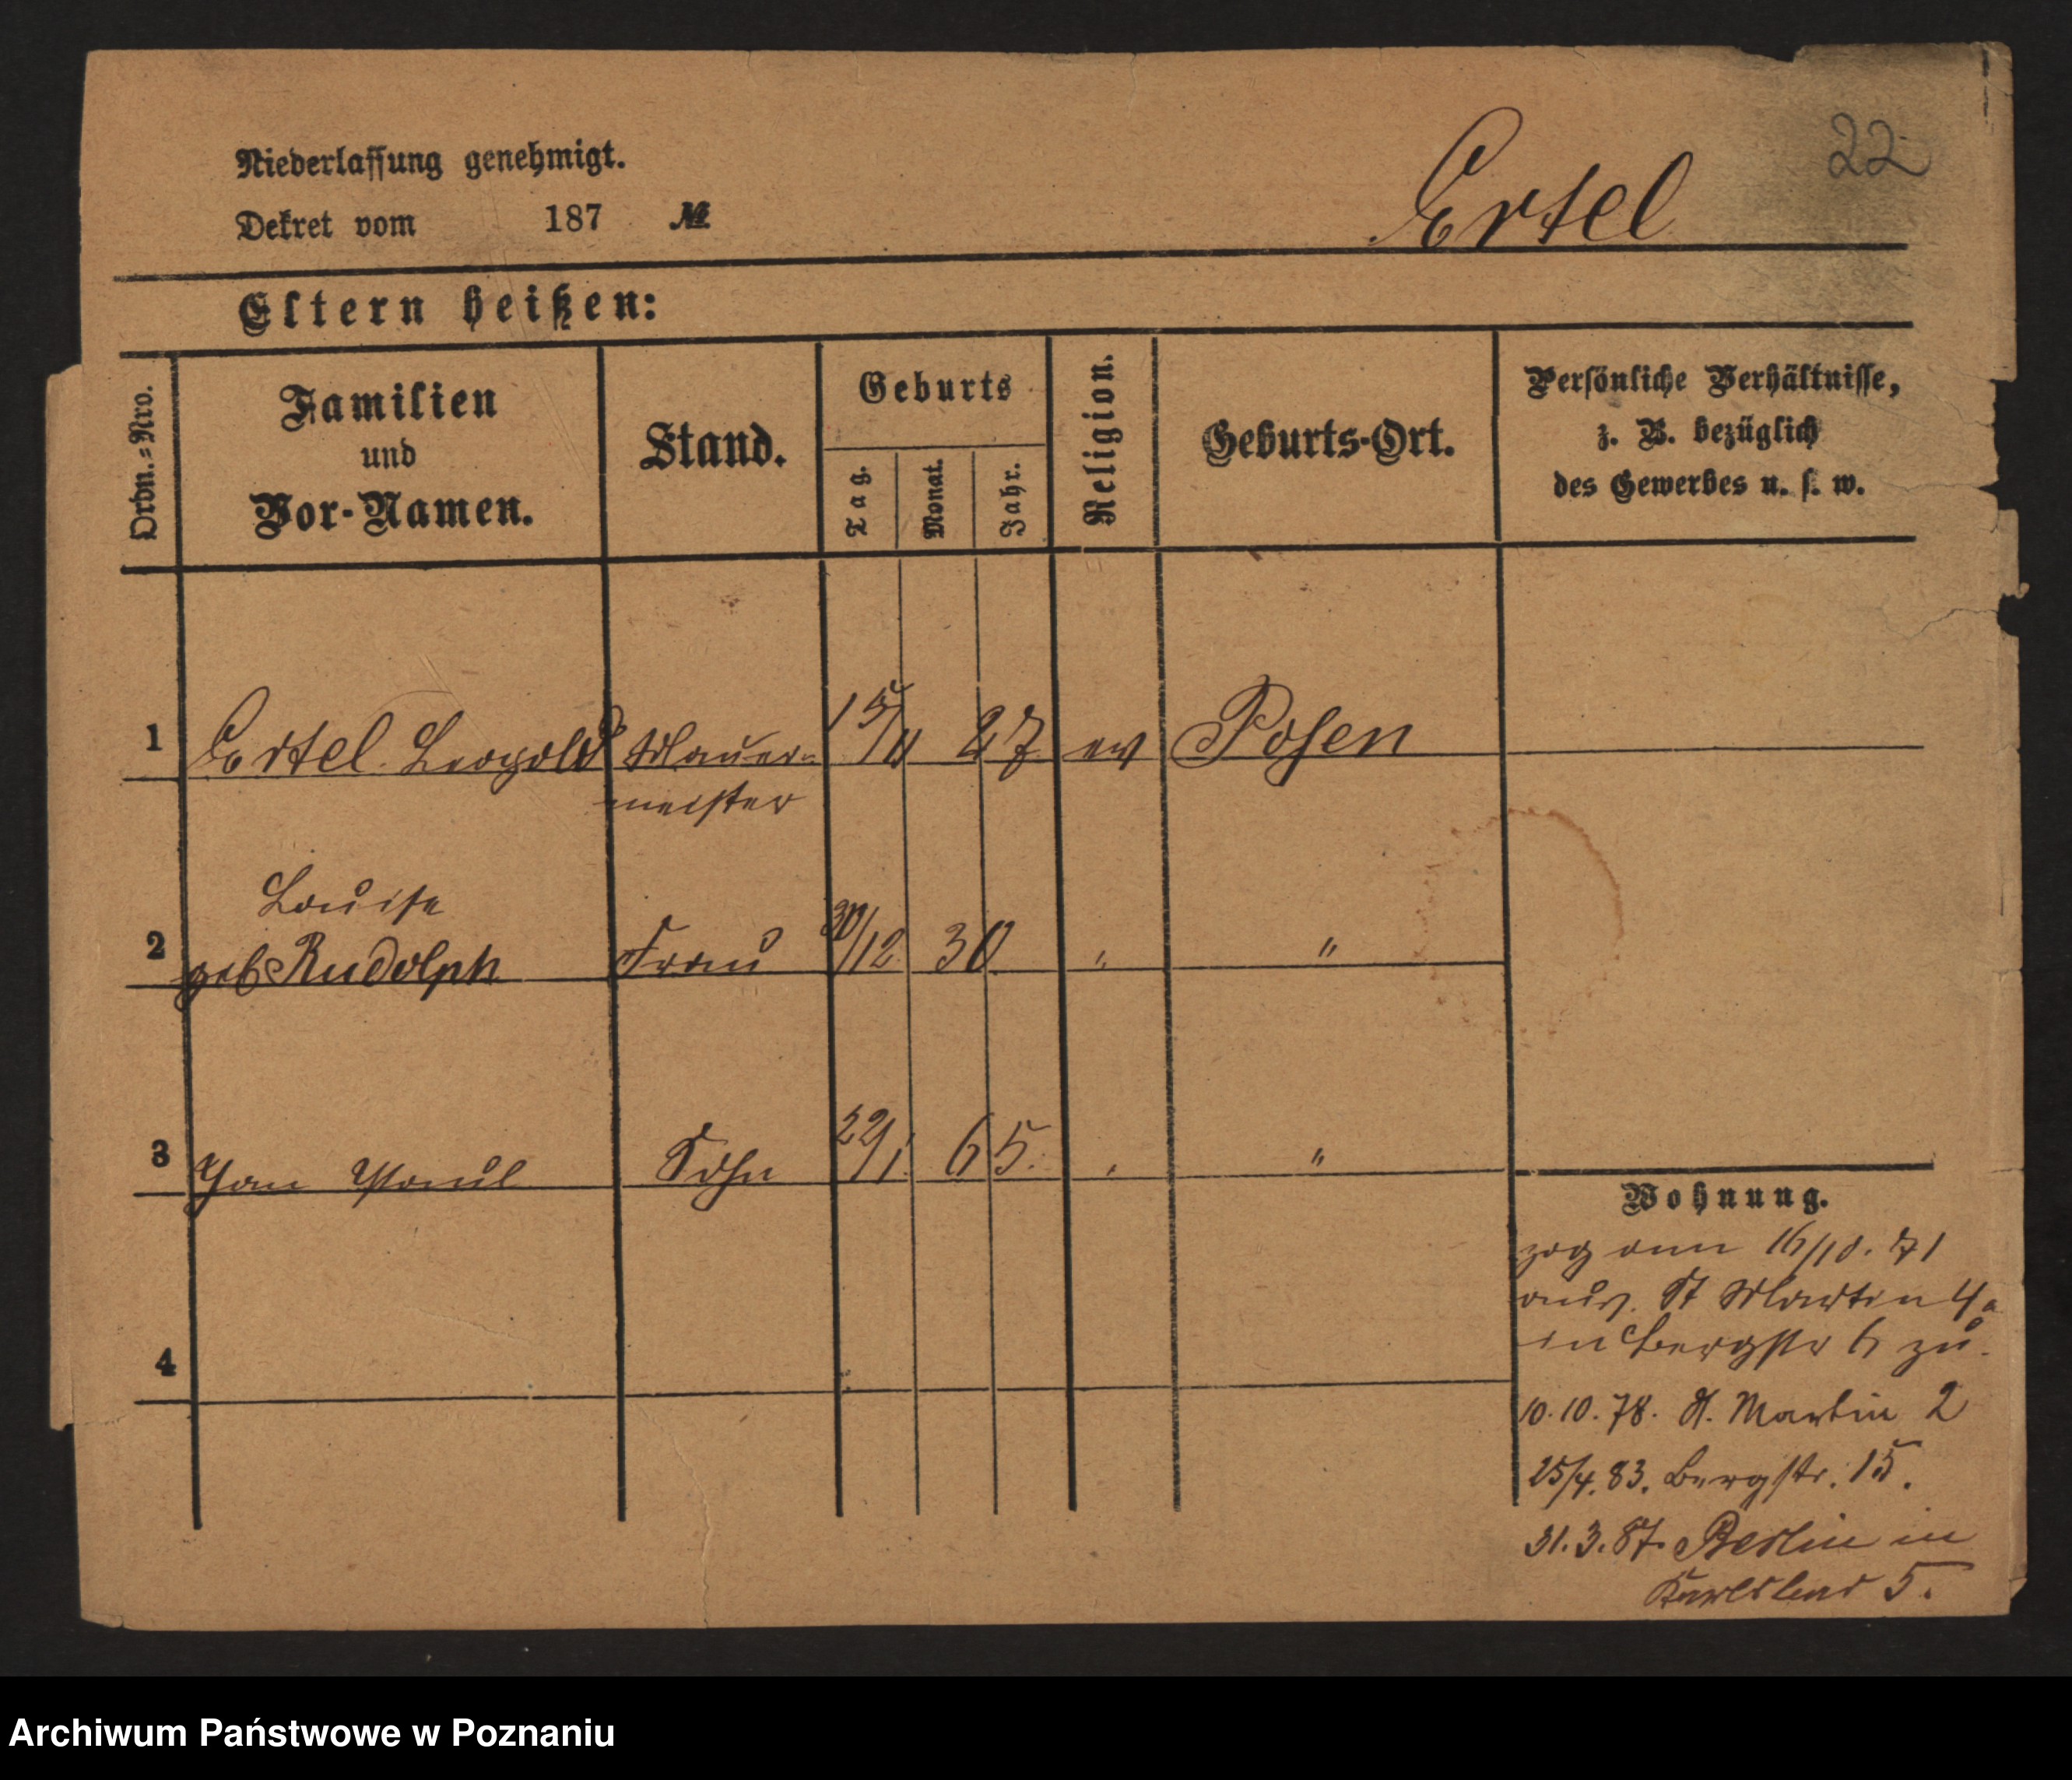 22
Niederlassung genehmigt.
Dekret vom 187 №
Ertel
Eltern heißen:
Ordn.=Nro.
Familien
und
Vor-Namen.
Stand.
Geburts
Tag.
Monat.
Jahr.
Religion.
Geburts-Ort.
Persönliche Verhältnisse,
z. B. bezüglich
des Gewerbes u. s. w.
1 Ertel Leopold Maurer= 15/11 27 ev Posen
meister
Louise
2 geb Rudolph Frau 30/12 30 " "
3 Paul Sohn 22/1. 65. " "
4
Wohnung.
zog am 16/10. 71
aus. St Martin 4a
in Bergstr 6 zu.
10.10.78. St. Martin 2
25/4.83. Bergstr. 15.
31.3.87. Berlin in
Karlsbad 5.
Archiwum Państwowe w Poznaniu